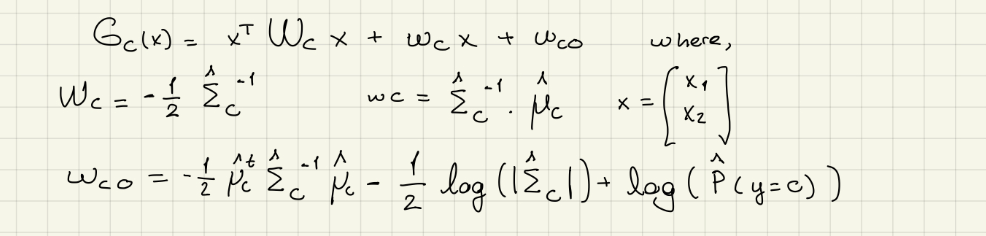 G_c(x) = x^T W_c x + w_c x + w_co where,
W_c = -1/2 Σ̂_c^-1 wc = Σ̂_c^-1 . μ̂_c x = [x_1 x_2]
w_co = -1/2 μ̂_c^t Σ̂_c^-1 μ̂_c - 1/2 log(|Σ̂_c|) + log(P̂(y=c))